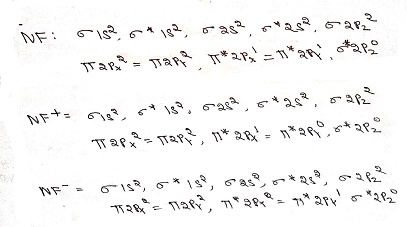 NF: σ1s², σ*1s², σ2s², σ*2s², σ2P_z²
π2Pₓ² = π2Pᵧ², π*2Pₓ¹ = π*2Pᵧ¹, σ*2P_z⁰
NF⁺ = σ1s², σ*1s², σ2s², σ*2s², σ2P_z²
π2Pₓ² = π2Pᵧ², π*2Pₓ¹ = π*2Pᵧ⁰, σ*2P_z⁰
NF⁻ = σ1s², σ*1s², σ2s², σ*2s², σ2P_z²
π2Pₓ² = π2Pᵧ², π*2Pₓ² = π*2Pᵧ¹ σ*2P_z⁰